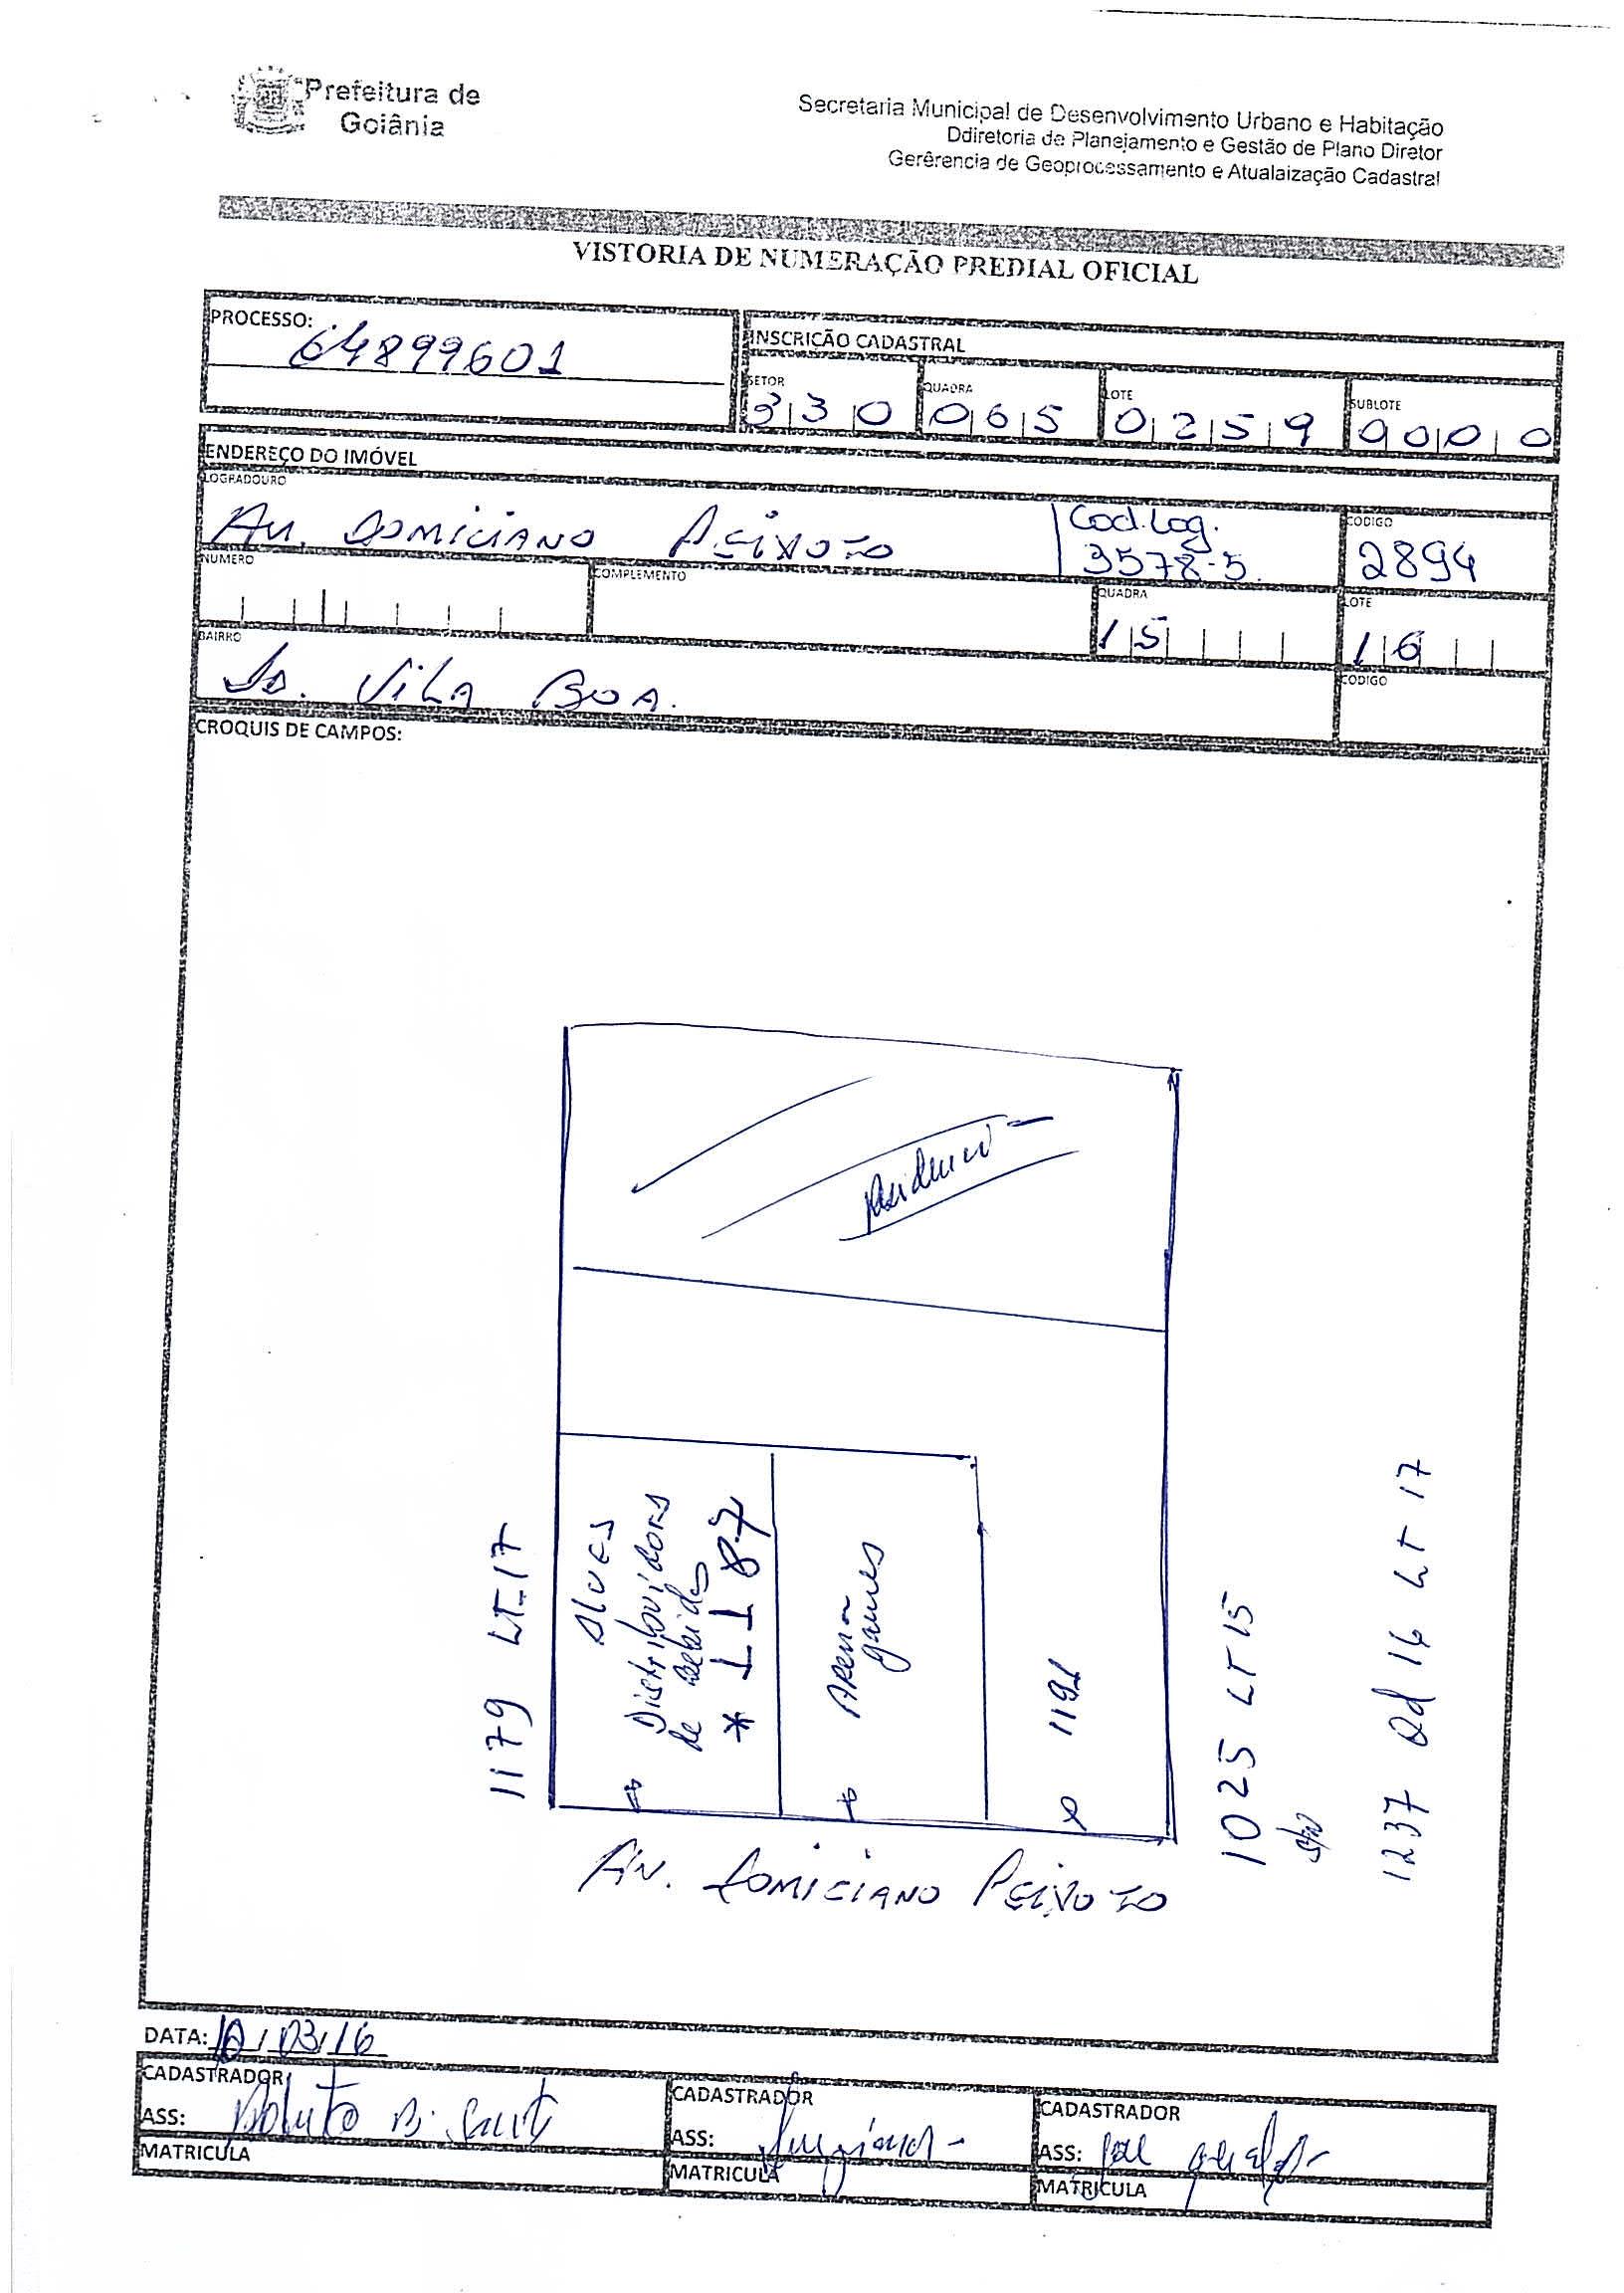 Prefeitura de
Goiânia
Secretaria Municipal de Desenvolvimento Urbano e Habitação
Ddiretoria de Planejamento e Gestão de Plano Diretor
Gerêrencia de Geoprocessamento e Atualaização Cadastral
VISTORIA DE NUMERAÇÃO PREDIAL OFICIAL
PROCESSO:
64899601
INSCRIÇÃO CADASTRAL
SETOR QUADRA LOTE SUBLOTE
330 065 0259 0000
ENDEREÇO DO IMÓVEL
LOGRADOURO
Av. DOMICIANO PEIXOTO
Cod.Log.
3578-5
CODIGO
2894
NUMERO COMPLEMENTO QUADRA LOTE
15 16
BAIRRO
Jd. ViLA BOA.
CODIGO
CROQUIS DE CAMPOS:
1179 LT-17
Alves
Distribuidora
de Bebidas
* 1187
Arena
games
1191
1025 LT 15
S/N
1237 Qd 16 LT 17
AV. DOMICIANO PEIXOTO
DATA: 10/03/16
CADASTRADOR CADASTRADOR CADASTRADOR
ASS: ASS: ASS:
MATRICULA MATRICULA MATRICULA